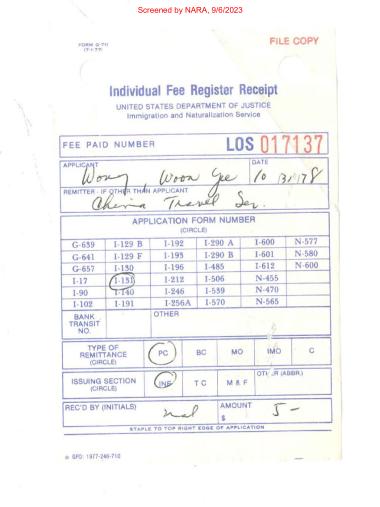 Screened by NARA, 9/6/2023
FORM G-711
(7-1-77)
FILE COPY
Individual Fee Register Receipt
UNITED STATES DEPARTMENT OF JUSTICE
Immigration and Naturalization Service
FEE PAID NUMBER LOS 017137
APPLICANT DATE
Wong Woon Gee 10 31 78
REMITTER - IF OTHER THAN APPLICANT
China Travel Ser.
APPLICATION FORM NUMBER
(CIRCLE)
G-639 I-129 B I-192 I-290 A I-600 N-577
G-641 I-129 F I-193 I-290 B I-601 N-580
G-657 I-130 I-196 I-485 I-612 N-600
I-17 I-131 I-212 I-506 N-455
I-90 I-140 I-246 I-539 N-470
I-102 I-191 I-256A I-570 N-565
BANK TRANSIT NO. OTHER
TYPE OF REMITTANCE (CIRCLE) PC BC MO IMO C
ISSUING SECTION (CIRCLE) INF T C M & F (ABBR.)
REC'D BY (INITIALS) AMOUNT
$ 5 -
STAPLE TO TOP RIGHT EDGE OF APPLICATION
GPO: 1977-246-710